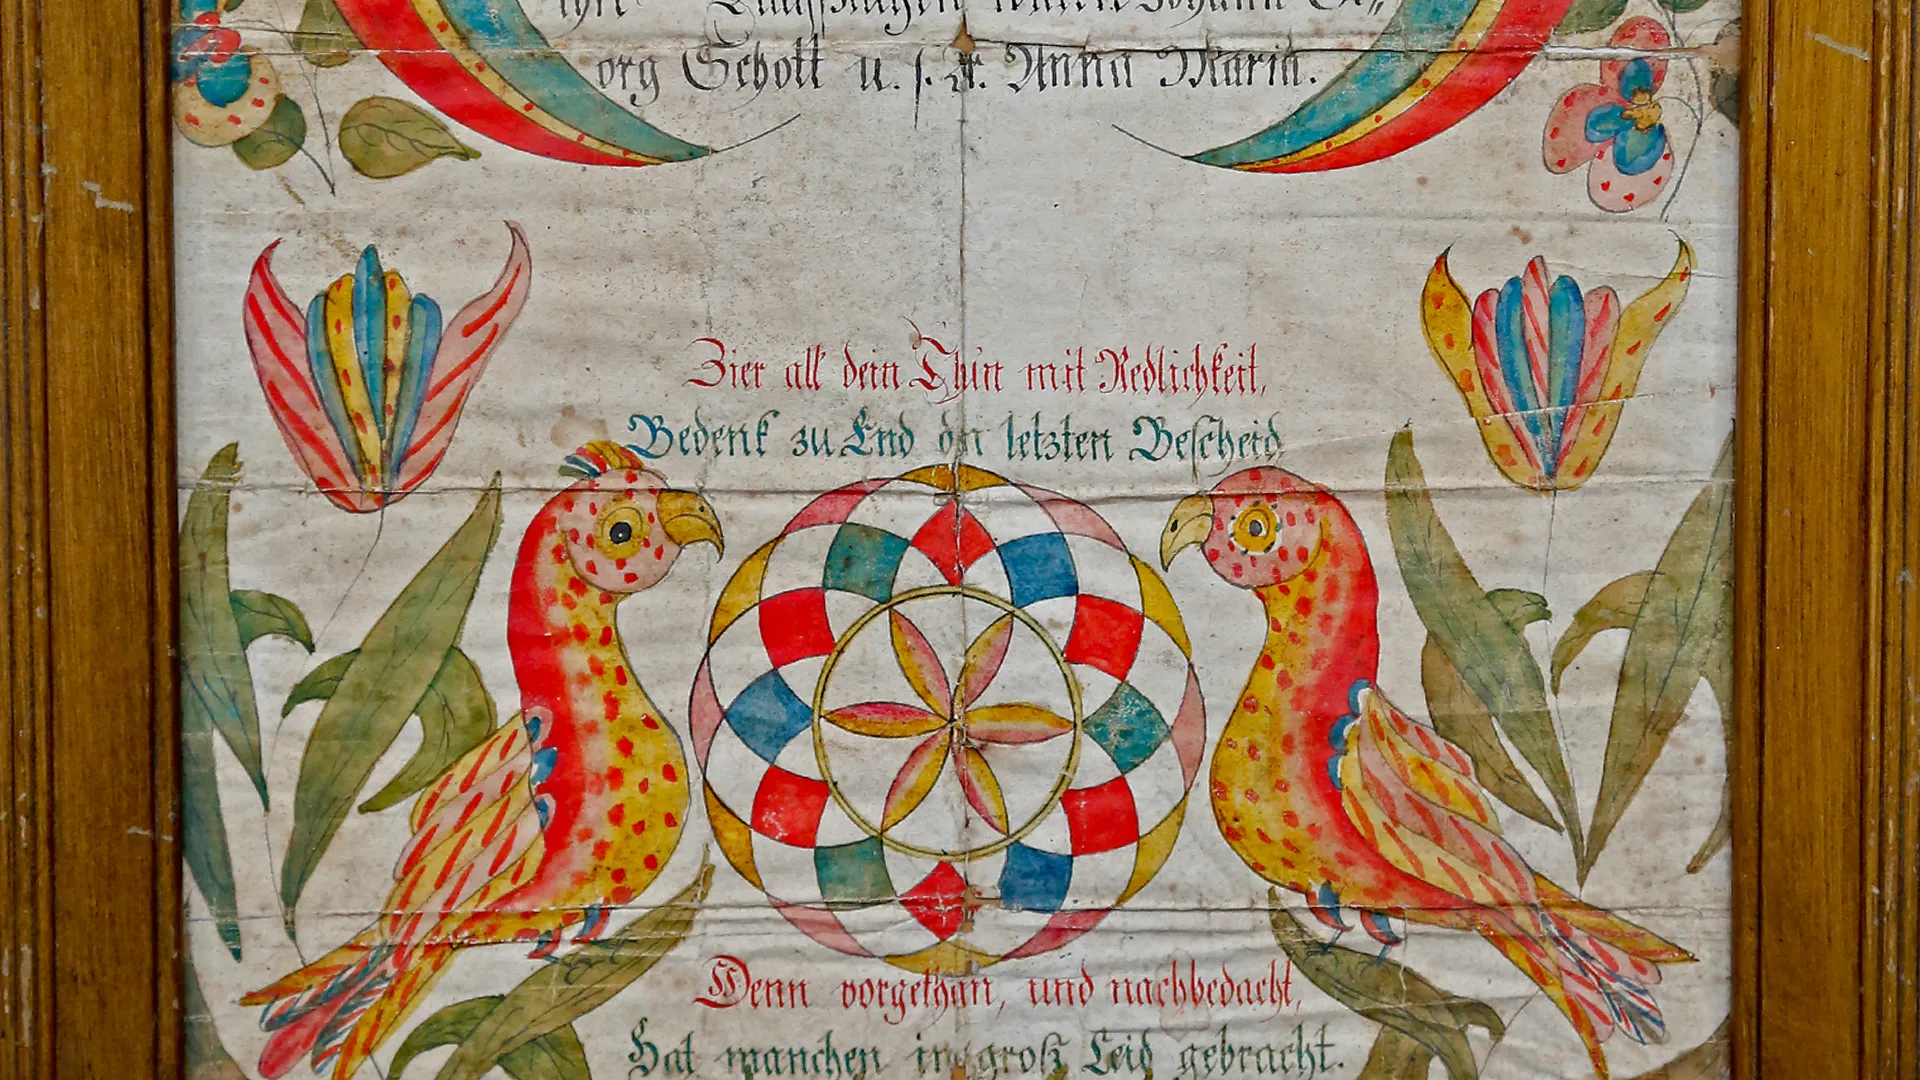 ihre Taufzeugen waren: Johann Ge⸗
org Schott u. s. Fr. Anna Maria.
Zier all dein Thun mit Redlichkeit,
Bedenk zu End dn letzten Bescheid
Denn vorgethan, und nachbedacht,
Hat manchen in groß Leid gebracht.